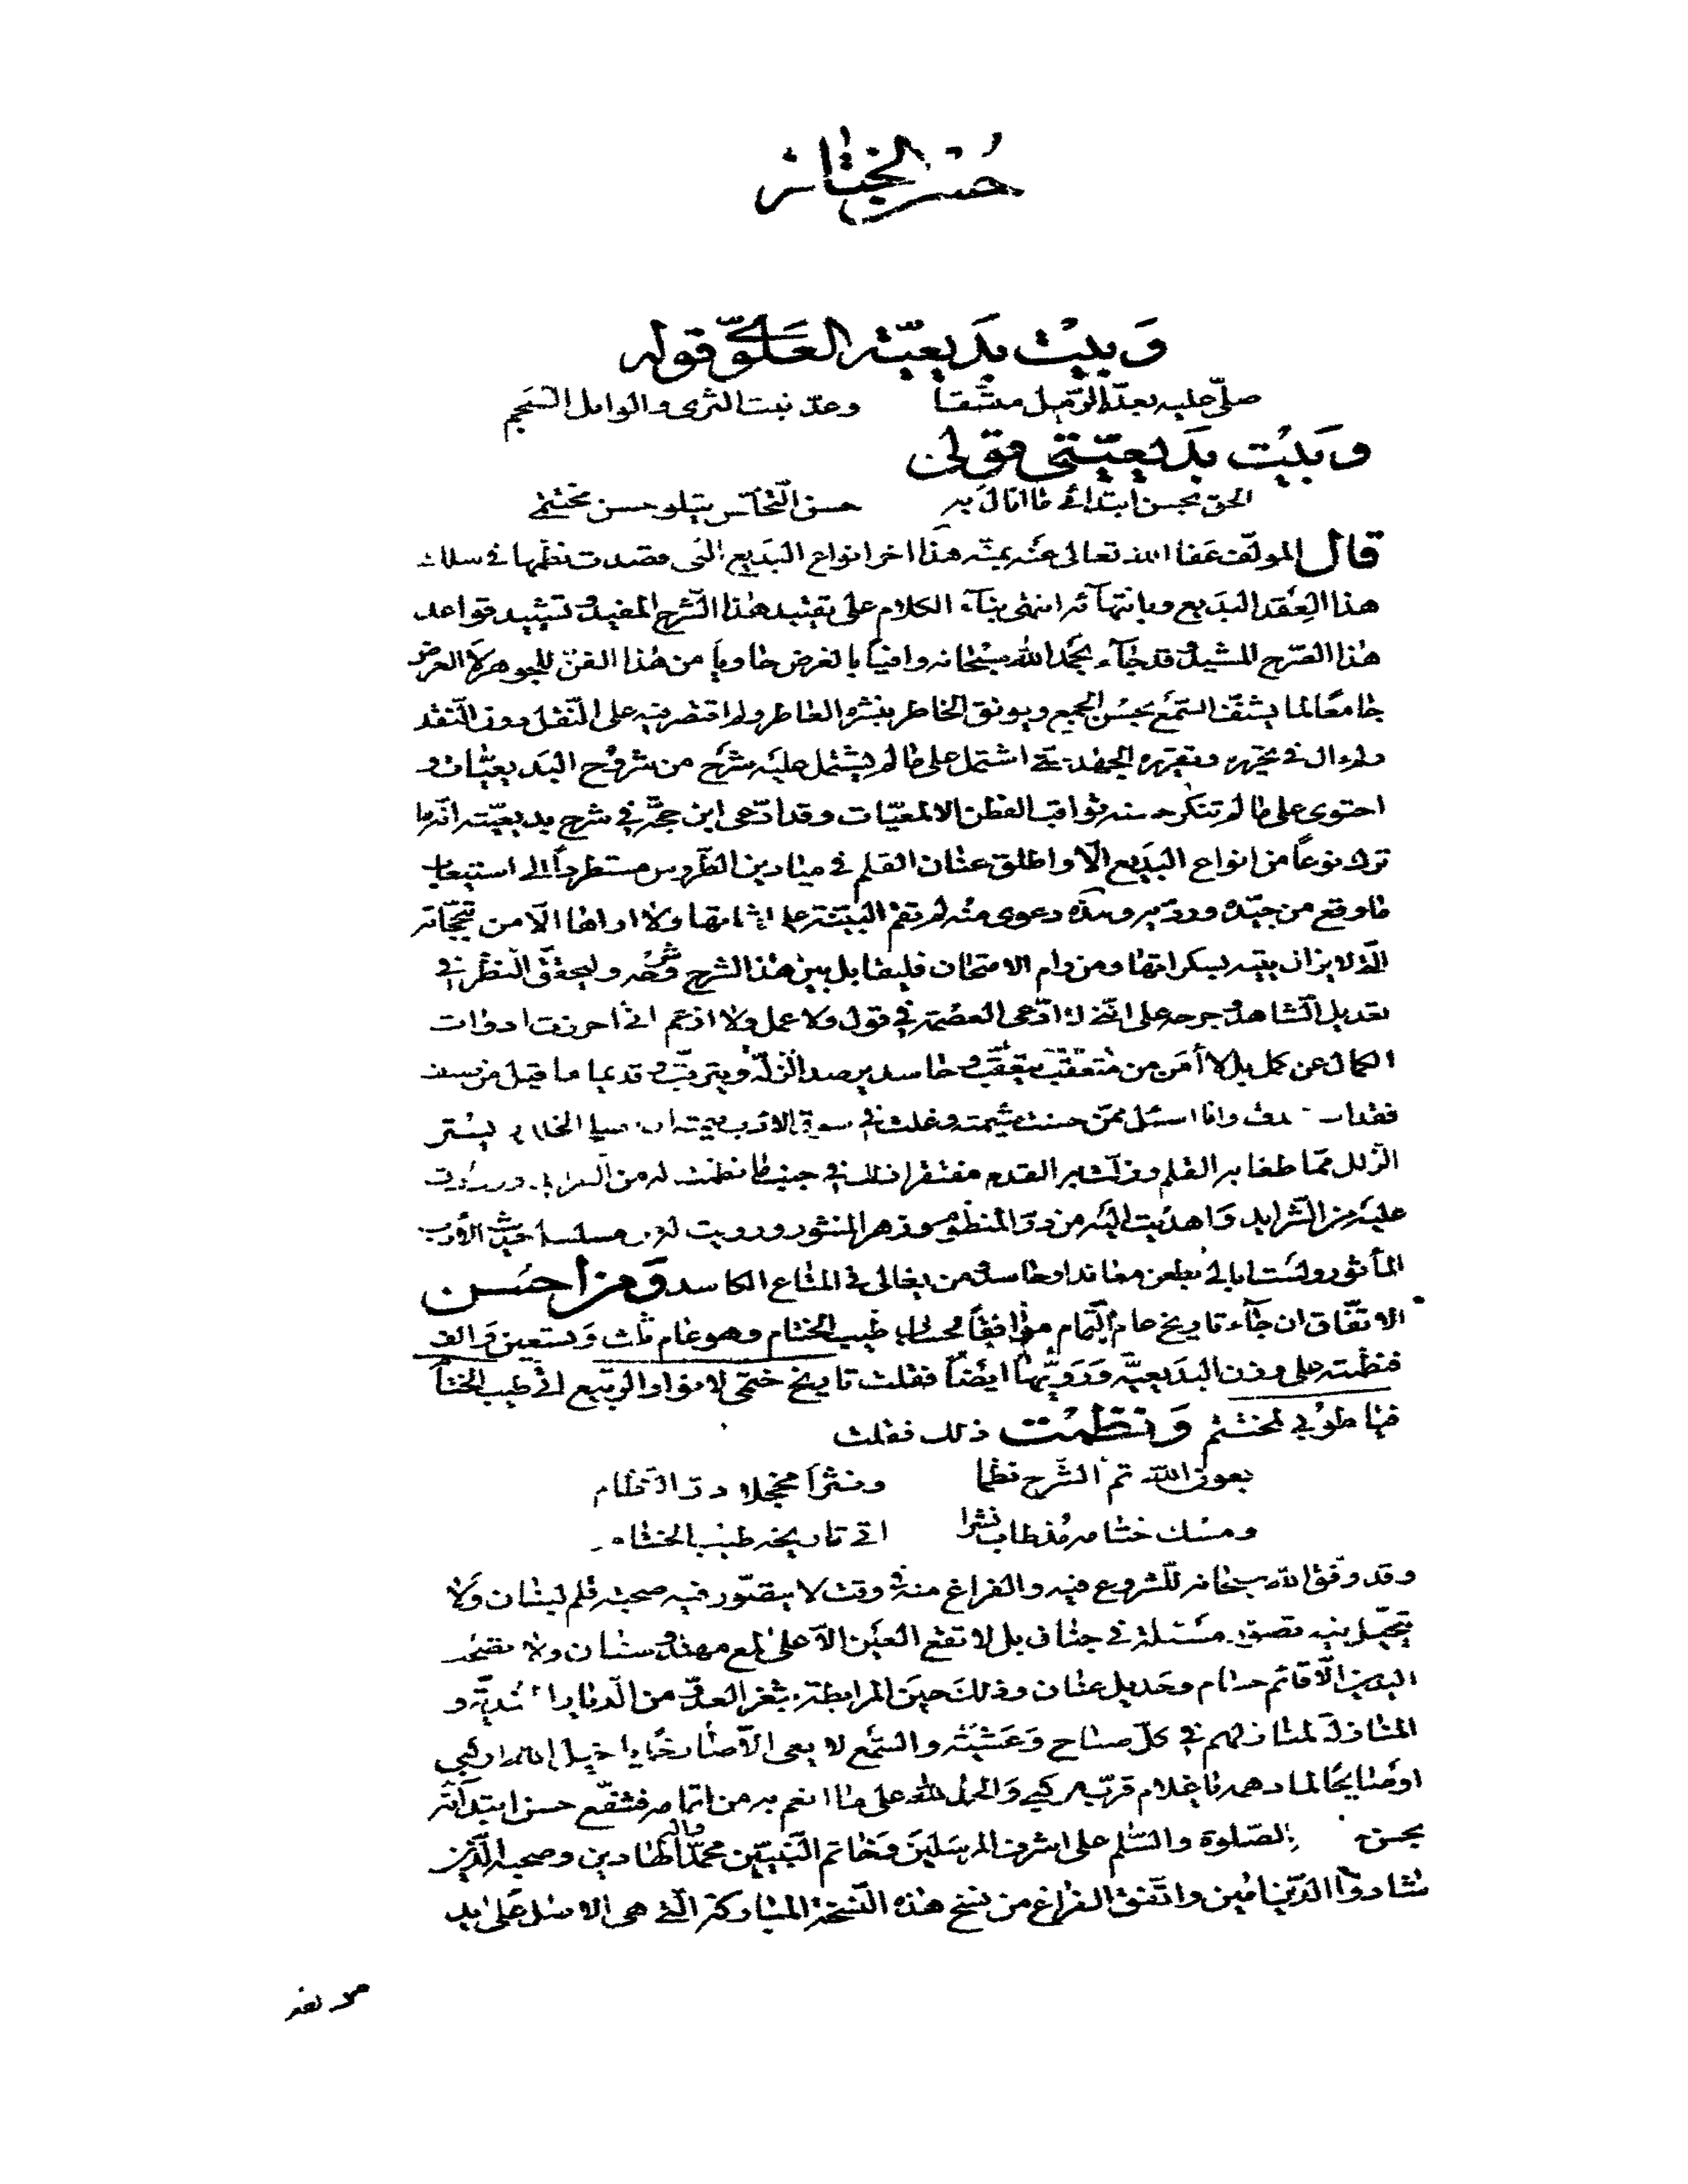 حسن الختام
وبيت بديعيّة العلويّ قوله
صلّى عليه بعدّ الرّمل منشئنا وعدّ نبت الثرى والوابل السّجم
وبيت بديعيّتي قولي
حسن ابتدائي يتلو حسن مختتمي
قال المؤلّف عفا الله تعالى عنه بمنّه هذا اخر انواع البديع التى قصدت نظمها في سلك
هذا العقد البديع وبانتهائه انتهى بناء الكلام على تقييد هذا الشرح المفيد وتشييد قواعد
هذا الصّرح المشيد وقد جاء بحمد الله سبحانه وافيا بالغرض حاويا من هذا الفنّ للجوهر لا العرض
جامعًا لما يشنّف السّمع بحسن الجمع ويونق الخاطر بنشره العاطر ولم اقتصر فيه على النّقل دون النّقد
ولم ال في تحريره وتقريره الجهد حتّى اشتمل على ما لم يشتمل عليه شرح من شروح البديعيّات و
احتوى على ما لم تنكره منه ثواقب الفطن الالمعيّات وقد ادّعى ابن حجّة في شرح بديعيّته انّه ما
ترك نوعاً من انواع البديع الّا واطلق عنان القلم في ميادين الطّروس مستطرداً الى استيعاب
ما وقع من جيّده ورديّه وهذه دعوى منه لم تقم البيّنة على اثباتها ولا اراها الّا من
ومن رام الامتحان فليقابل بين هذا الشرح وشرحه وليحقّق النظر في
تعديل الشّاهد وجرحه على انّني لا ادّعى العصمة في قول ولا عمل ولا ازعم انّي احرزت ادوات
الكمال عن كمل بل لا أمن من متعقّب يتعقّب وحاسد يرصد الزّلّة ويترقّب وقديما ما قيل من صنّف
فقد استهدف وانا اسئل ممّن حسنت شيمته وغلت في سوق الادب قيمته ان يستر
الزّلل ممّا طغا به القلم وزلّت به القدم مغتفرا ذلك في جنب ما نظمت له من
عليه من الشّرايد واهديت اليه من درّ المنظوم وزهر المنثور ورويت له من مسلسل حديث الأدب
المأثور ولست ابالي بطعن معاند او حاسد ومن يغالى في المتاع الكاسد ومن أحسن
الاتّفاق ان جاء تاريخ عام التّمام موافقاً لحساب طيب الختام وهو عام ثلث وتسعين والف
فنظمته على وزن البديعيّة ورويّها ايضًا فقلت تاريخ ختمى لانواع البديع اتى طيب الختام
فيا طوبى لمختتم ونظمت ذلك فقلت
بعون الله تمّ الشّرح نظما ونثراً مخجلا درّ النّظام
ومسك ختامه مذ طاب نشرا اتى تاريخه طيب الختام
وقد وفّق الله سبحانه للشروع فيه والفراغ منه في وقت لا يتصوّر فيه صحبة قلم لبنان ولا
تخيّل فيه تصوّر مسئلة في جنان بل لا تقع العين الّا على لمع مهنّد وسنان ولا
اليدين الّا قائم حسام وجديل عنان وذلك حين المرابطة بثغر العدوّ من الدّيار الهنديّة و
المنازلة لمنازلهم في كلّ صباح وعشيّة والسّمع لا يعى الّا صارخًا يا خيل الله اركبي
او صايحًا لمادهمه يا غلام قرّب مركبي والحمد لله على ما انعم به من اتمامه فشفّع حسن ابتدائه
بحسن الصّلوة والسّلم على اشرف المرسلين وخاتم النّبيّين محمّد واله الهادين وصحبه الّذين
شادوا الدّين امين واتّفق الفراغ من نسخ هذه النّسخة المباركة الّتي هي الاصل على يد